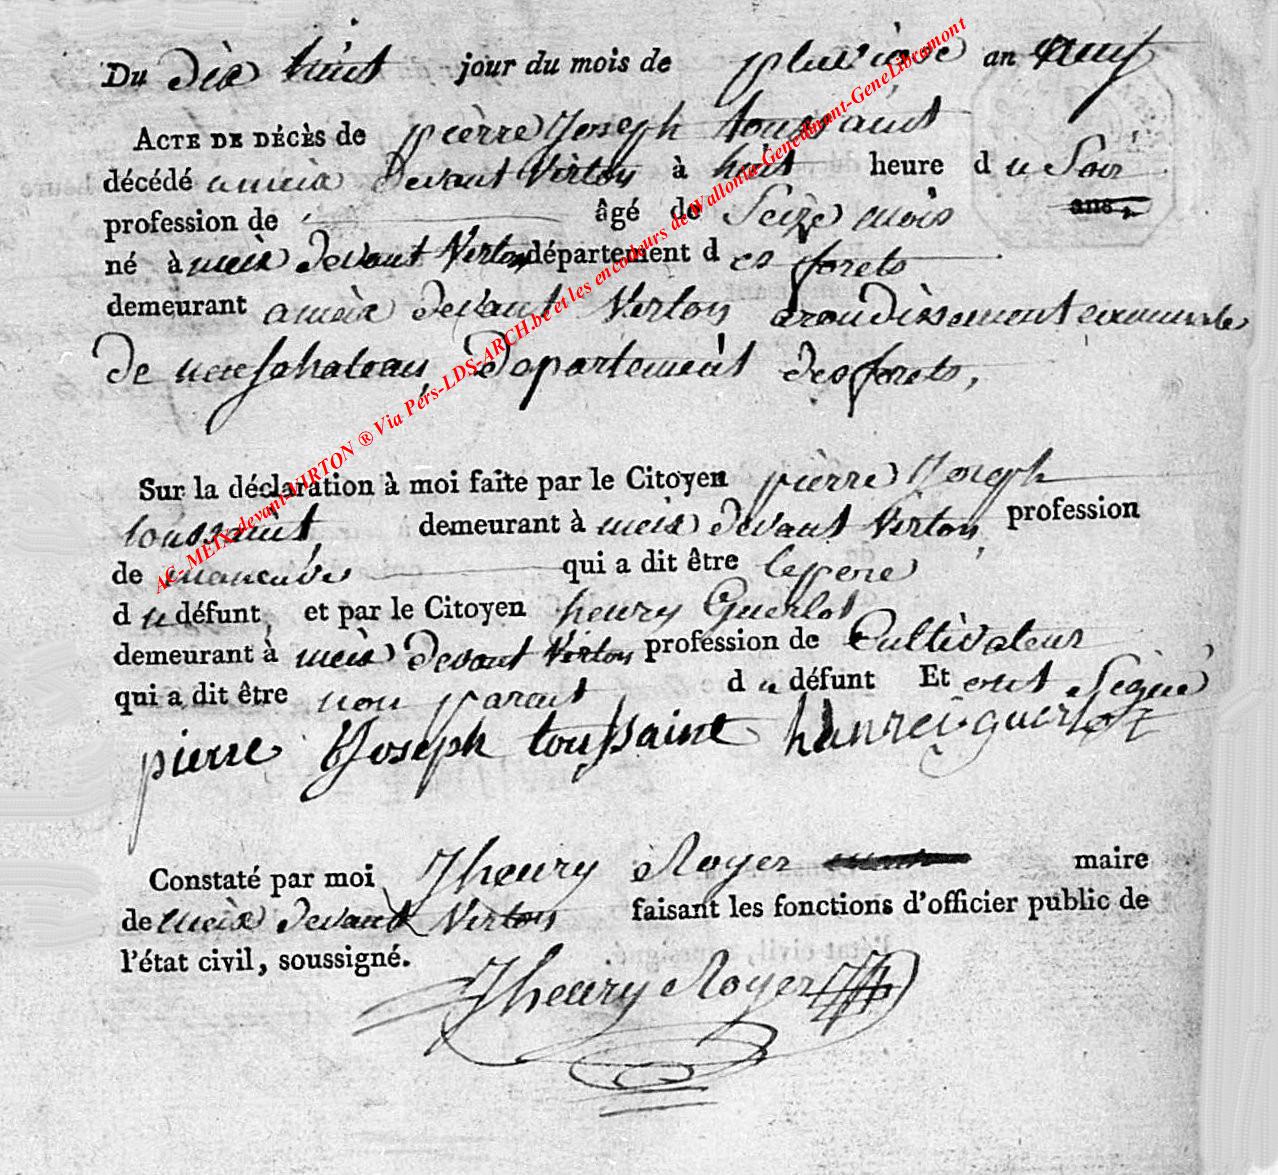 Du dix huit jour du mois de pluviose an neuf
ACTE DE DÉCÈS de pièrre Joseph toussaint
décédé a meix devant Virton à huit heure du Soir
profession de âgé de Seize mois ans,
né à meix devant Virton département des forets
demeurant a meix devant Virton arondissement
de neufchateau, departement des forets,
Sur la déclaration à moi faite par le Citoyen pièrre Joseph
toussaint, demeurant à meix devant Virton, profession
de manœuvre qui a dit être le pere
du défunt et par le Citoyen henry Guerlot
demeurant à meix devant Virton profession de Cultivateur
qui a dit être non parent du défunt Et ont Signé
pierre Joseph toussaint guerlot
Constaté par moi Jhenry Royer maire
de meix devant Virton faisant les fonctions d'officier public de
l'état civil, soussigné.
Jhenry Royer
AC- MEIX-devant-VIRTON ® Via Pers-LDS-ARCH.be et les encodeurs de Wallonie-Genedinant-GeneLibramont